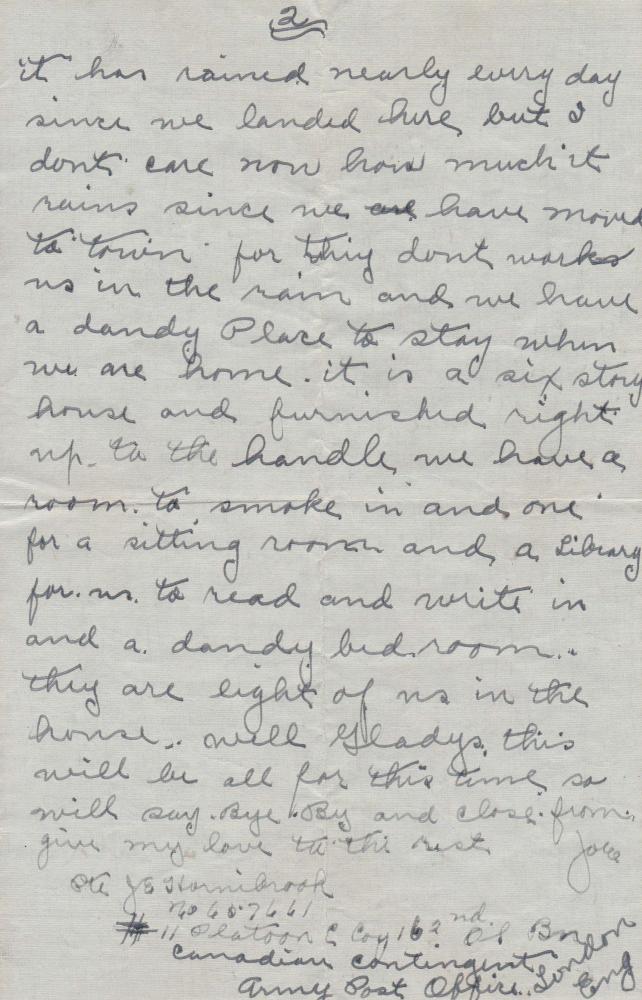 2
it has rained nearly every day
since we landed here, but I
dont care now how much it
rains since we are have moved
to town for they dont works
us in the rain and we have
a dandy Place to stay when
we are home. it is a six story
house and furnished right
up. to the handle, we have a
room. to smoke in and one
for a sitting room and, a Library
for. us. to read and write in
and a. dandy bed.room..
they are eight of us in the
house.. well Gladys, this
will be all for this time, so
will say. Bye. By and close. from.
give my love to the rest Joe
Pte J E Hornibrook
No 657661
# 11 Platoon C Coy 162nd OS Bn
Canadian Contingent
Army Post Office. London
Eng